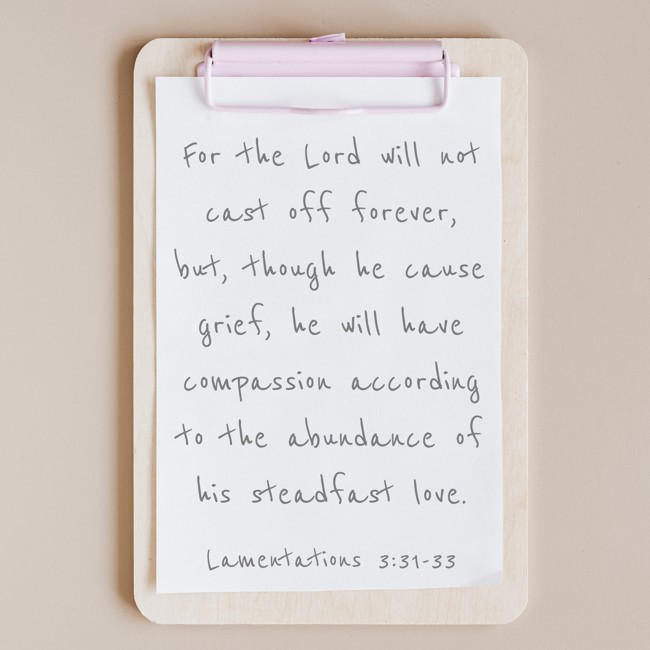 For the Lord will not
cast off forever,
but, though he cause
grief, he will have
compassion according
to the abundance of
his steadfast love.
Lamentations 3:31-33